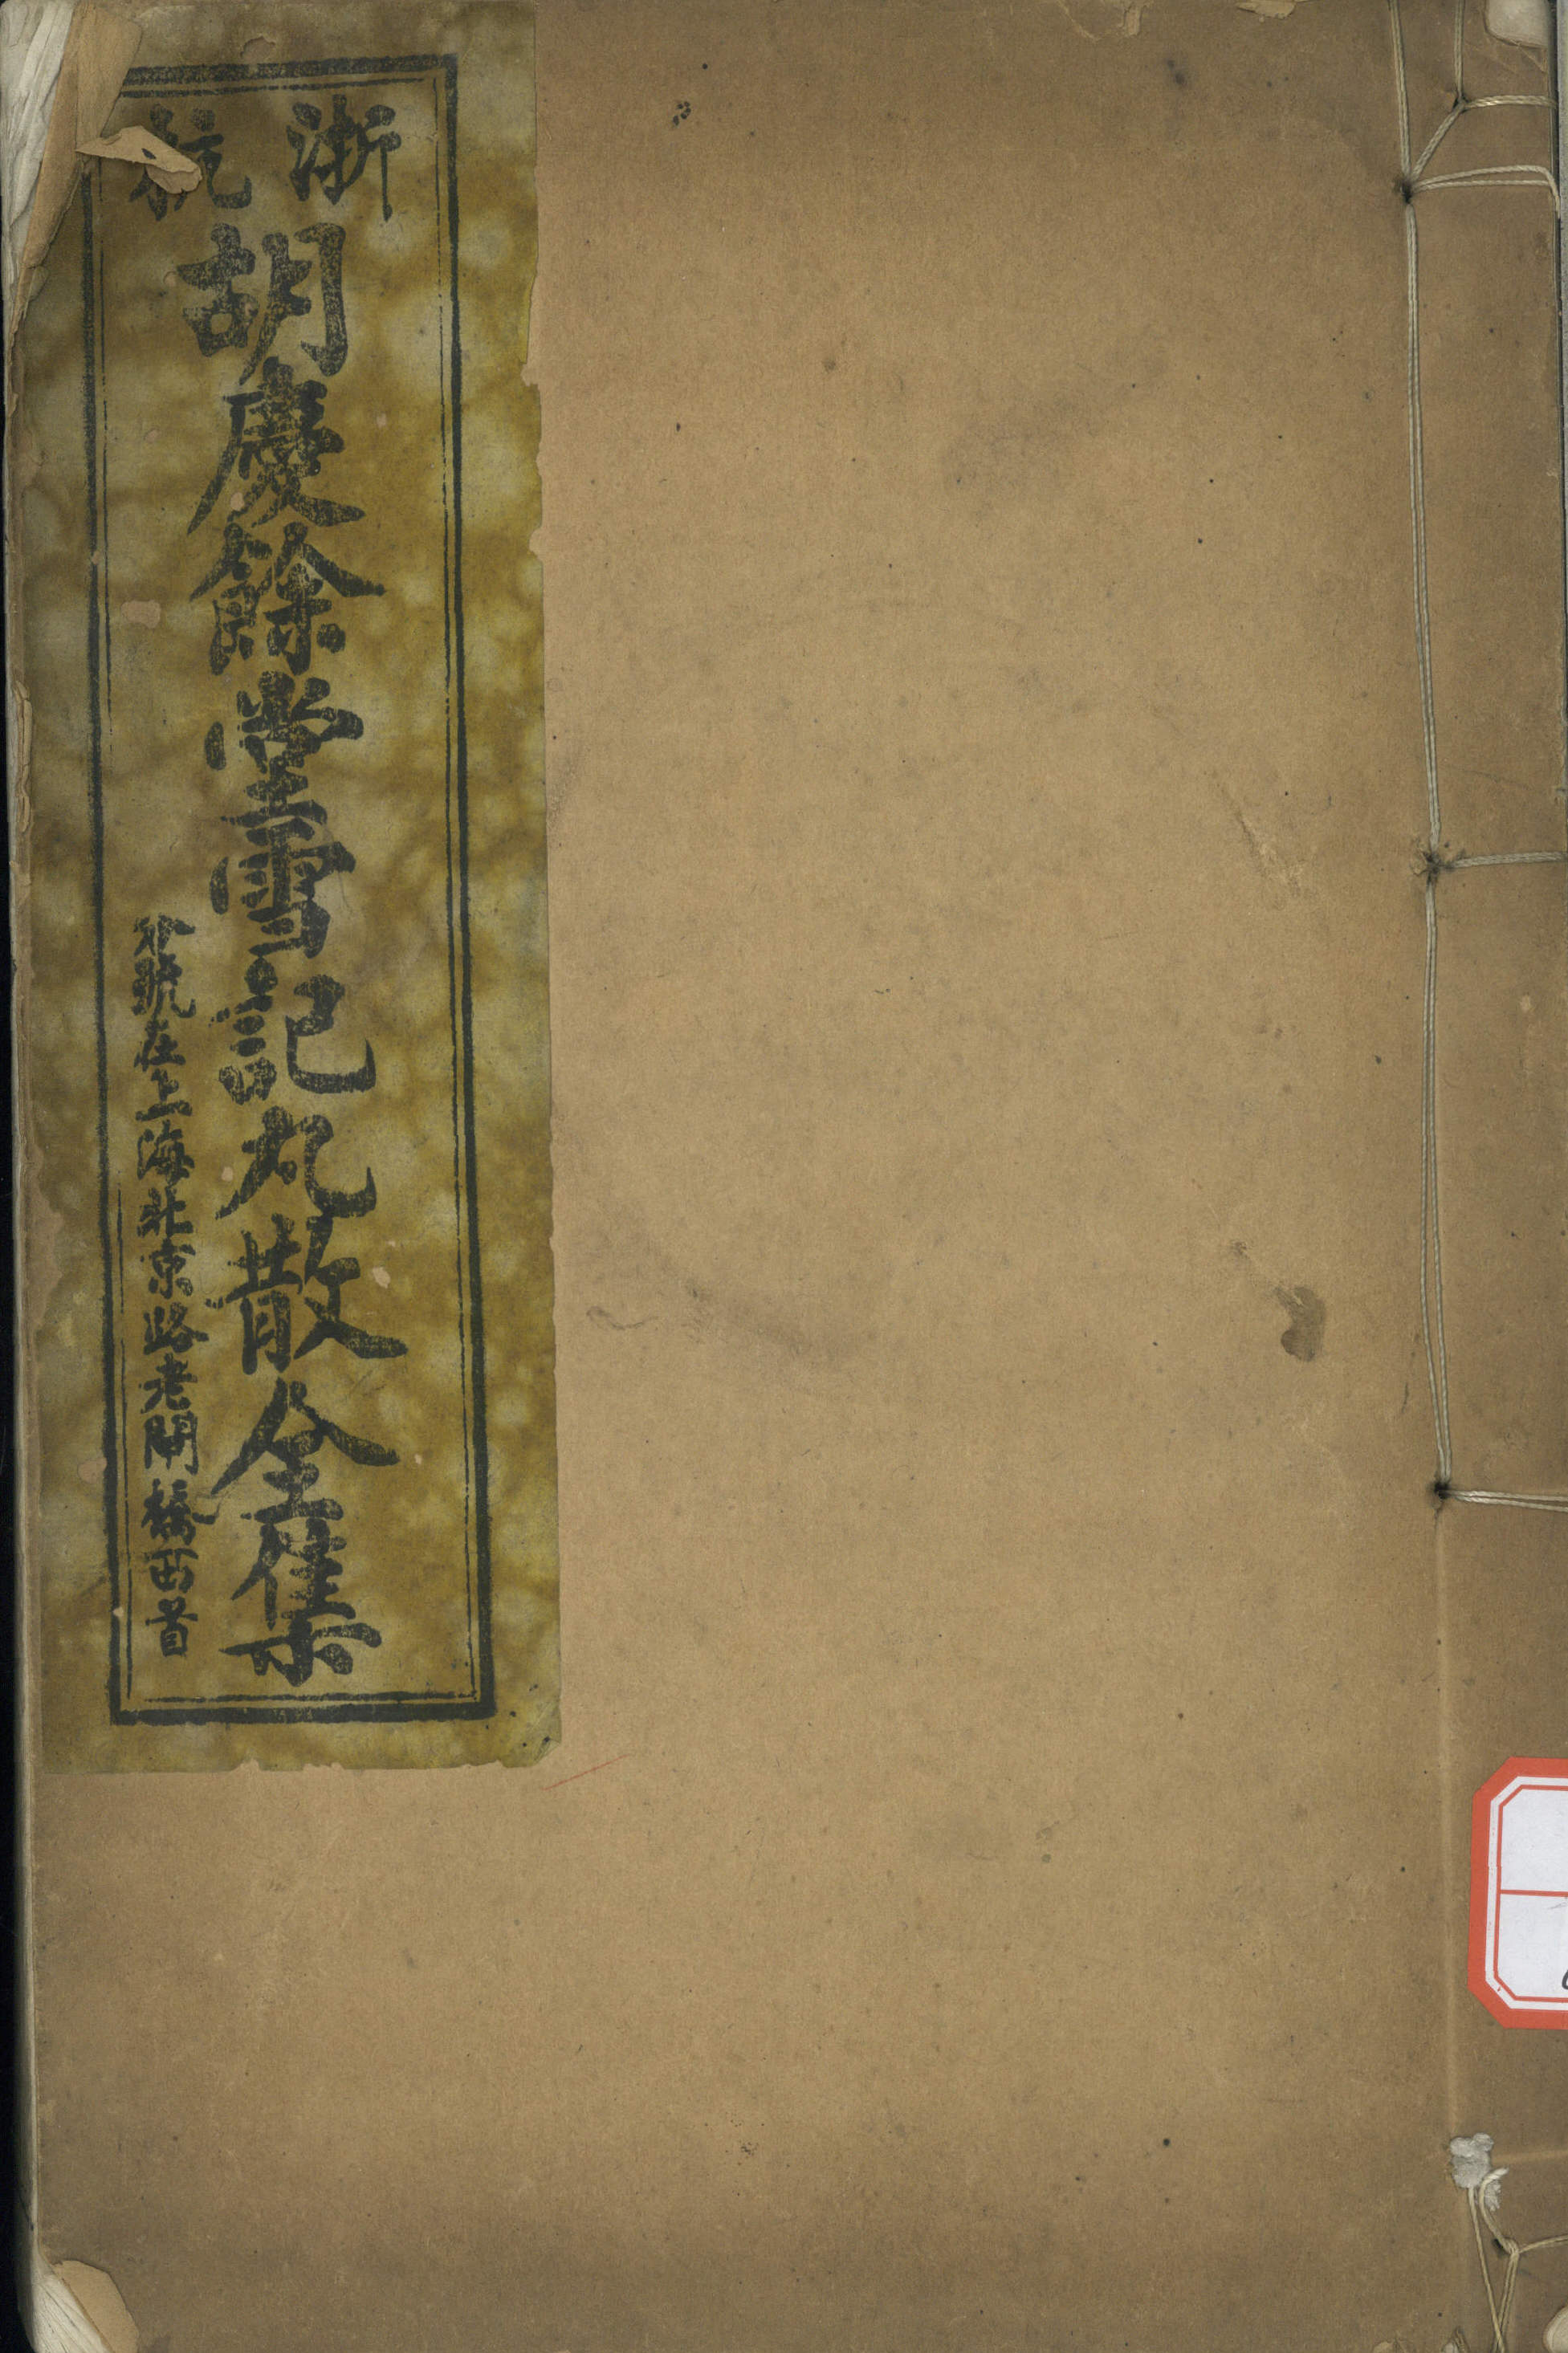 浙杭
胡慶餘堂雪記丸散全集
分號在上海北京路老閘橋西首